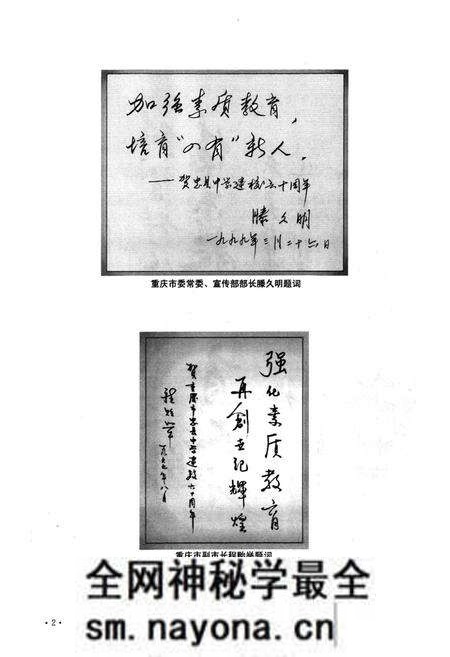 加强素质教育，
培育“四有”新人。
——贺忠县中学建校六十周年
滕久明
一九九九年三月二十六日
重庆市委常委、宣传部部长滕久明题词
强化素质教育
再创世纪辉煌
贺重庆市忠县中学建校六十周年
重庆市副市长程贻举题词
全网神秘学最全
sm.nayona.cn
·2·